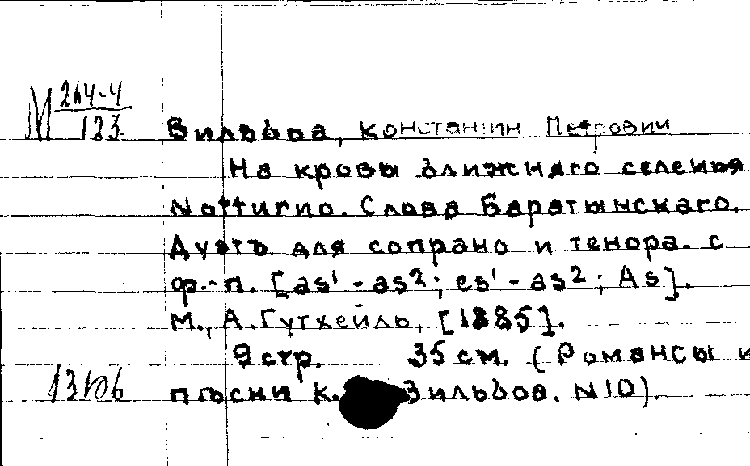 М 264-4
123
Вильбоа, Константин Петрович
На кровы ближняго селенья
Notturno. Слова Баратынскаго.
Дуэтъ для сопрано и тенора. с
ф.-п. [as¹ - as²; es¹ - as²; As].
М., А. Гутхейль, [1885].
9 стр. 35 см. (Романсы и
пѣсни К. Вильбоа. N10).